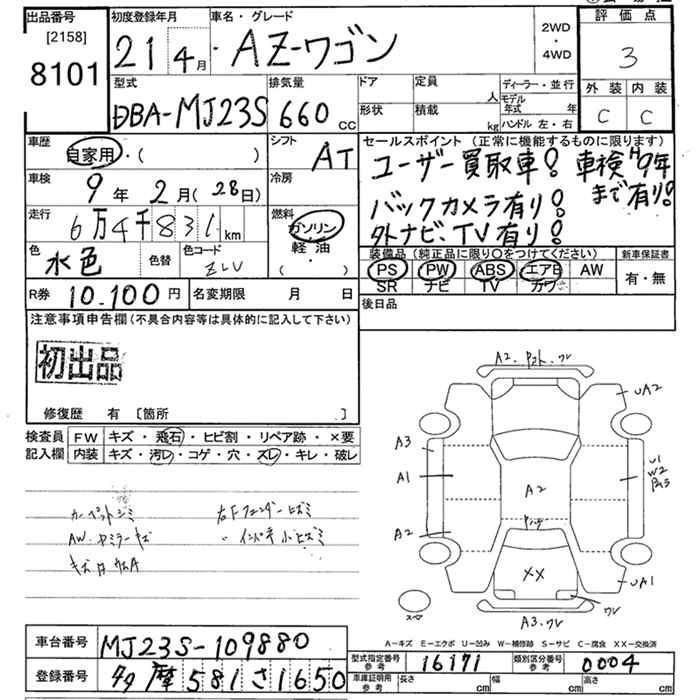 出品番号
[2158]
8101
初度登録年月
21 4月
車名・グレード
・AZ-ワゴン
2WD
・
4WD
評価点
3
外装 内装
C C
型式
DBA-MJ23S
排気量
660 CC
ドア
定員
人
形状
積載
kg
ディーラー・並行
モデル年式 年
ハンドル 左・右
車歴
自家用・( )
シフト
AT
セールスポイント (正常に機能するものに限ります)
ユーザー買取車! 車検H9年
バックカメラ有り! まで有り!
外ナビ、TV有り!
車検
9年 2月(28日)
冷房
走行
6万4千831km
燃料
ガソリン
・
軽油
( ・ )
色
水色
色替
色コード
ZLV
装備品 (純正品に限り○をつけてください)
PS PW ABS エアB AW
SR ナビ TV カワ
新車保証書
有・無
R券 10.100円
名変期限 月 日
後日品
注意事項申告欄(不具合内容等は具体的に記入して下さい)
初出品
修復歴 有 [箇所 ]
検査員記入欄
FW キズ・飛石・ヒビ割・リペア跡・×要
内装 キズ・汚レ・コゲ・穴・スレ・キレ・破レ
カーペットシミ
AW.ドミラーキズ
右Fフェンダーヒズミ
インパネ小ヒズミ
A2.
ワレ
UA2
A3
A1
A2
A2
U1
W2
XX
UA1
ワレ
A3.ワレ
スペア
A-キズ E-エクボ U-凹み W-補修跡 S-サビ C-腐食 XX-交換済
車台番号 MJ23S-109880
登録番号 多摩 581 さ 1650
型式指定番号 参考 16171
類別区分番号 参考 0004
車庫証明用 参考
長さ cm
幅 cm
高さ cm